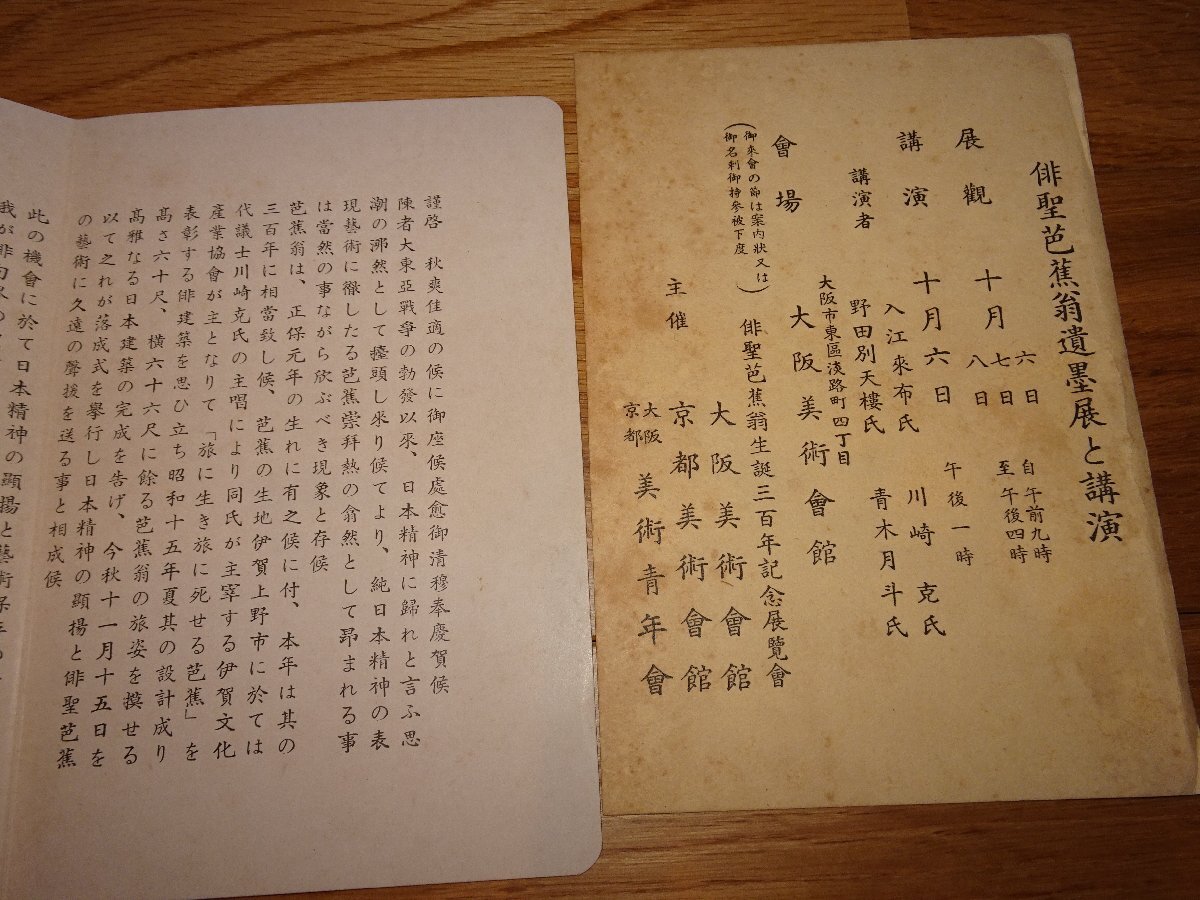 俳聖芭蕉翁遺墨展と講演
展觀 十月 六日 七日 八日 自午前九時 至午後四時
講演 十月六日 午後一時
講演者 入江來布氏 川崎克氏
野田別天樓氏 青木月斗氏
會場 大阪市東區淡路町四丁目
大阪美術會館
(御來會の節は案内狀又は
御名刺御持參被下度)
俳聖芭蕉翁生誕三百年記念展覽會
主催 大阪美術會館
京都美術會館
大阪 京都 美術青年會
謹啓 秋爽佳適の候に御座候處愈御清穆奉慶賀候
陳者大東亞戰爭の勃發以來、日本精神に歸れと言ふ思
潮の澎然として擡頭し來り候てより、純日本精神の表
現藝術に徹したる芭蕉崇拜熱の翕然として昂まれる事
は當然の事ながら欣ぶべき現象と存候
芭蕉翁は、正保元年の生れに有之候に付、本年は其の
三百年に相當致し候、芭蕉の生地伊賀上野市に於ては
代議士川崎克氏の主唱により同氏が主宰する伊賀文化
產業協會が主となりて「旅に生き旅に死せる芭蕉」を
表彰する俳建築を思ひ立ち昭和十五年夏其の設計成り
高さ六十尺、橫六十六尺に餘る芭蕉翁の旅姿を摸せる
高雅なる日本建築の完成を告げ、今秋十一月十五日を
以て之れが落成式を擧行し日本精神の顯揚と俳聖芭蕉
の藝術に久遠の聲援を送る事と相成候
此の機會に於て日本精神の顯揚と藝術保
我が俳句界の